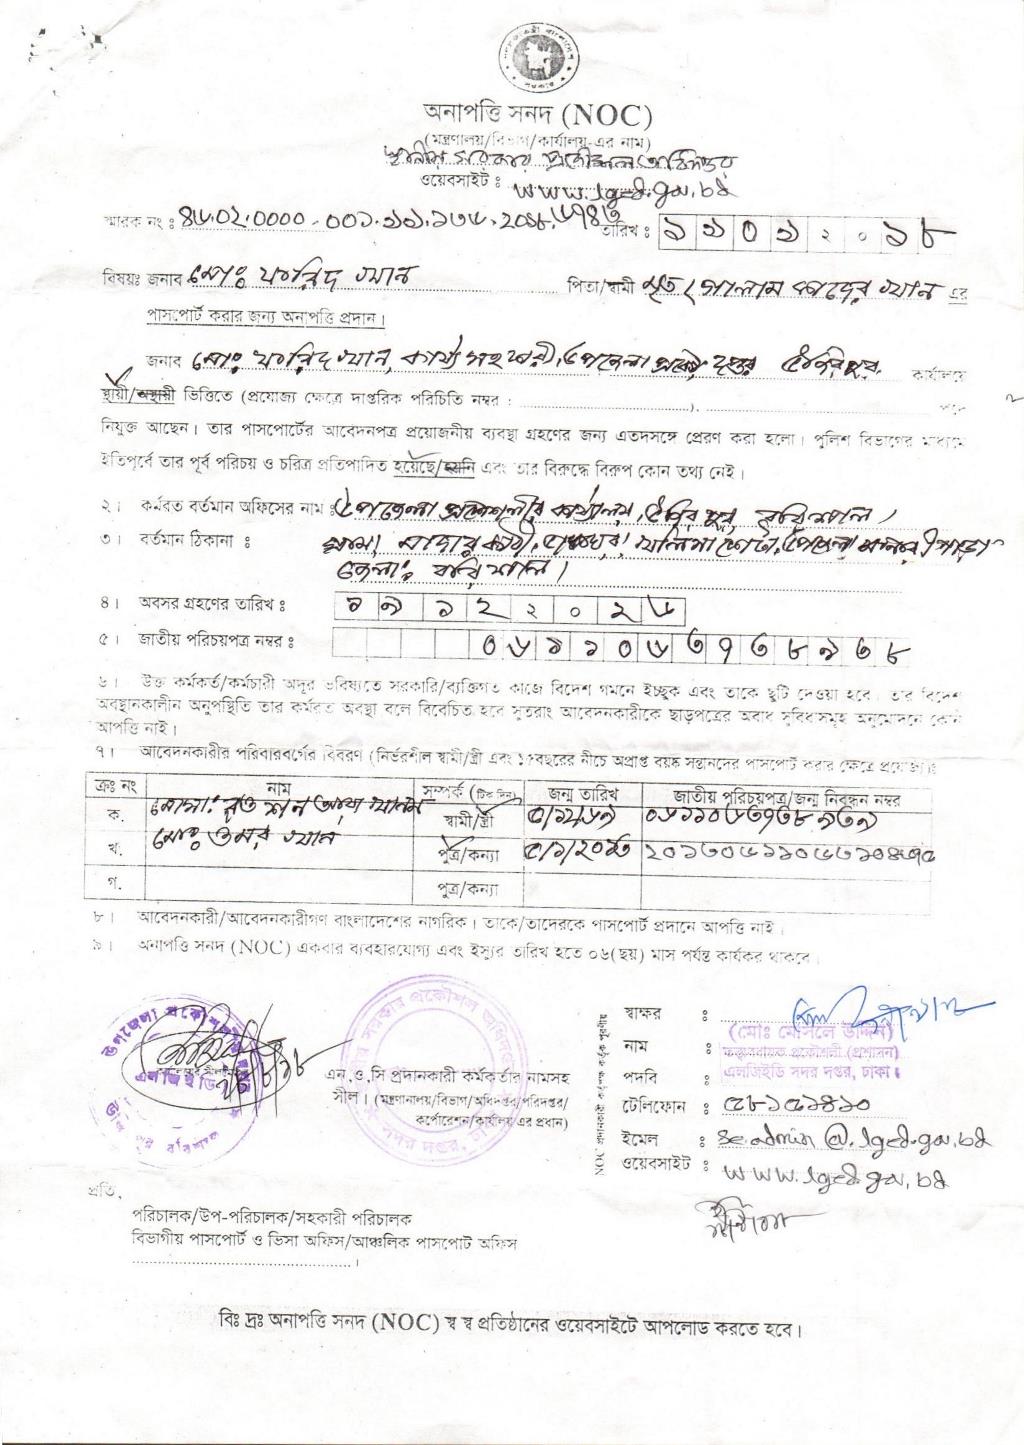 অনাপত্তি সনদ (NOC)
(মন্ত্রণালয়/বিভাগ/কার্যালয়-এর নাম)
স্থানীয় সরকার প্রকৌশল অধিদপ্তর
ওয়েবসাইট : www.lged.gov.bd
স্মারক নং : ৪৬.০২.০০০০.০০১.১১.১৩৫.২০১৮. তারিখ : ১১০১২০১৮
বিষয়ঃ জনাব মোঃ ফরিদ খান পিতা/স্বামী মৃত গোলাম কাদের খান এর
পাসপোর্ট করার জন্য অনাপত্তি প্রদান।
জনাব মোঃ ফরিদ খান, কার্য্য সহকারী, উপজেলা প্রকৌঃ দপ্তর উজিরপুর কার্যালয়ে
স্থায়ী/অস্থায়ী ভিত্তিতে (প্রযোজ্য ক্ষেত্রে দাপ্তরিক পরিচিতি নম্বর : ) পদে
নিযুক্ত আছেন। তার পাসপোর্টের আবেদনপত্র প্রয়োজনীয় ব্যবস্থা গ্রহণের জন্য এতদসঙ্গে প্রেরণ করা হলো। পুলিশ বিভাগের মাধ্যমে
ইতিপূর্বে তার পূর্ব পরিচয় ও চরিত্র প্রতিপাদিত হয়েছে/হয়নি এবং তার বিরুদ্ধে বিরুপ কোন তথ্য নেই।
২। কর্মরত বর্তমান অফিসের নাম : উপজেলা প্রকৌশলীর কার্য্যালয়, উজিরপুর, বরিশাল।
৩। বর্তমান ঠিকানা :
জেলা: বরিশাল।
৪। অবসর গ্রহণের তারিখ : ১৯১২২০২৬
৫। জাতীয় পরিচয়পত্র নম্বর : ০৬১১০৬৩৭৩৮৯৩৮
৬। উক্ত কর্মকর্ত/কর্মচারী অদূর ভবিষ্যতে সরকারি/ব্যক্তিগত কাজে বিদেশ গমনে ইচ্ছুক এবং তাকে ছুটি দেওয়া হবে। তার বিদেশ
অবস্থানকালীন অনুপস্থিতি তার কর্মরত অবস্থা বলে বিবেচিত হবে সুতরাং আবেদনকারীকে ছাড়পত্রের অবাধ সুবিধাসমূহ অনুমোদনে কোন
আপত্তি নাই।
৭। আবেদনকারীর পরিবারবর্গের বিবরণ (নির্ভরশীল স্বামী/স্ত্রী এবং ১৫বছরের নীচে অপ্রাপ্ত বয়ষ্ক সন্তানদের পাসপোর্ট করার ক্ষেত্রে প্রযোজ্য)ঃ
ক্রঃ নং নাম সম্পর্ক (টিক দিন) জন্ম তারিখ জাতীয় পরিচয়পত্র/জন্ম নিবন্ধন নম্বর
ক. মোসা: রওশন আরা খানম স্বামী/স্ত্রী ০৬১১০৬৩৭৩৮৯৩৯
খ. মোঃ ওমর খান পুত্র/কন্যা
গ. পুত্র/কন্যা
৮। আবেদনকারী/আবেদনকারীগণ বাংলাদেশের নাগরিক। তাকে/তাদেরকে পাসপোর্ট প্রদানে আপত্তি নাই।
৯। অনাপত্তি সনদ (NOC) একবার ব্যবহারযোগ্য এবং ইস্যুর তারিখ হতে ০৬(ছয়) মাস পর্যন্ত কার্যকর থাকবে।
এন.ও.সি প্রদানকারী কর্মকর্তার নামসহ
সীল। (মন্ত্রণানালয়/বিভাগ/অধিদপ্তর/পরিদপ্তর/
কর্পোরেশন/কার্যালয় এর প্রধান)
NOC প্রদানকারী কর্তৃক পূরণীয়
স্বাক্ষর :
নাম : (মোঃ মোসলে উদ্দিন)
তত্ত্বাবধায়ক প্রকৌশলী (প্রশাসন)
পদবি : এলজিইডি সদর দপ্তর, ঢাকা।
টেলিফোন : ৫৮১৫১৪১০
ইমেল : se.admin@lged.gov.bd
ওয়েবসাইট : www.lged.gov.bd
প্রতি,
পরিচালক/উপ-পরিচালক/সহকারী পরিচালক
বিভাগীয় পাসপোর্ট ও ভিসা অফিস/আঞ্চলিক পাসপোর্ট অফিস
।
বিঃ দ্রঃ অনাপত্তি সনদ (NOC) স্ব স্ব প্রতিষ্ঠানের ওয়েবসাইটে আপলোড করতে হবে।